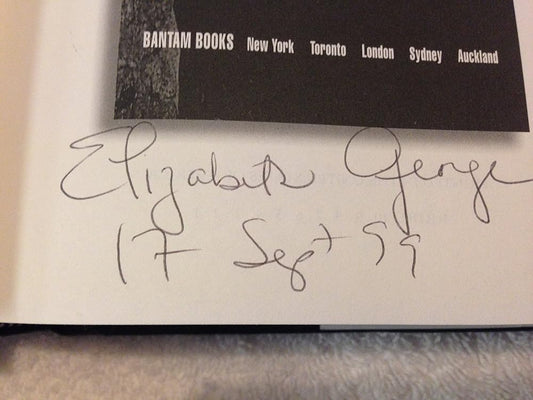 BANTAM BOOKS New York Toronto London Sydney Auckland
Elizabeth George
17 Sept 99